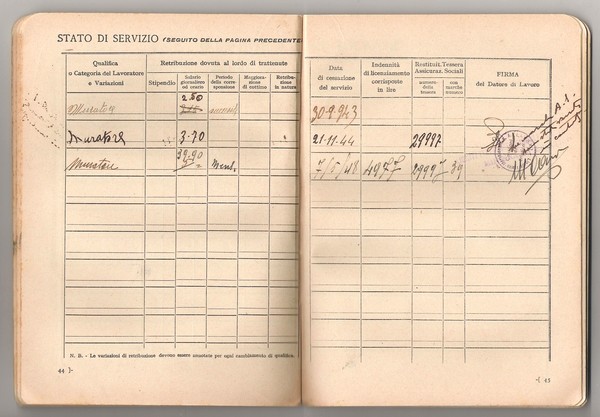 STATO DI SERVIZIO (SEGUITO DELLA PAGINA PRECEDENTE
Qualifica
o Categoria del Lavoratore
e Variazioni
Retribuzione dovuta al lordo di trattenute
Stipendio
Salario
giornaliero
od orario
Periodo
della corre-
sponsione
Maggiora-
zione
di cottimo
Retribu-
zione
in natura
Muratore
2.80
Muratore
3.70
Muratore
39.90
N. B. - Le variazioni di retribuzione devono essere annotate per ogni cambiamento di qualifica.
44
Data
di cessazione
del servizio
Indennità
di licenziamento
corrisposta
in lire
Restituit. Tessera
Assicuraz. Sociali
numero
della
tessera
con
marche
numero
FIRMA
del Datore di Lavoro
30-9-943
21-11-44
29997
48
4977
29997
39
45